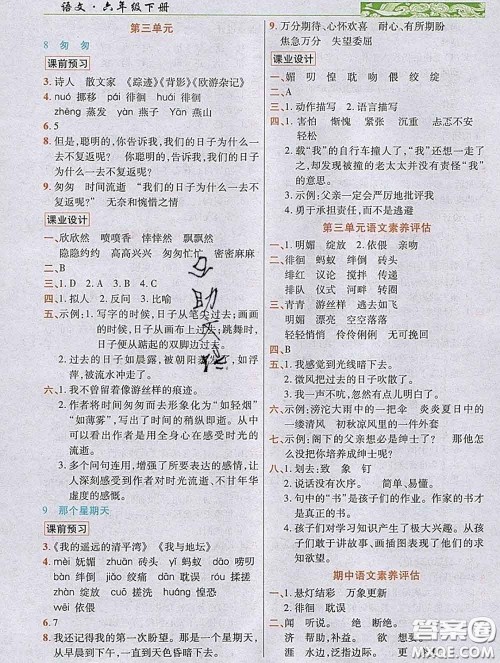 语文·六年级下册
第三单元
8 匆匆
课前预习
3. 诗人 散文家 《踪迹》《背影》《欧游杂记》
4. nuó 挪移 pái 徘徊 xù 柳絮 cóng 匆匆
zhēng 蒸发 yàn 燕子 Yān 燕山
6. 5
8. 但是,聪明的,你告诉我,我们的日子为什么一
去不复返呢? 你聪明的,告诉我,我们的日子
为什么一去不复返呢?
9. 匆匆 时间流逝 “我们的日子为什么一去不
复返呢?” 无奈和愧惜之情
课业设计
一、欣欣然 喷喷香 悻悻然 飘飘然
隐隐约约 高高兴兴 匆匆忙忙 密密麻麻
二、B
三、1. D 2. A 3. B 4. C
四、1. 拟人 2. 反问 3. 比喻
五、示例:1. 写字的时候,日子从笔尖过去;画画
的时候,日子从画布上过去;跳舞时,
日子便从踮起的脚尖过去
2. 过去的日子如晨露,被朝阳蒸发;如浮
萍,被流水冲走了。
六、1. 我不曾留着像游丝样的痕迹。
2. 作者将时间匆匆而去形象化为“如轻烟”
“如薄雾”,写出了时间的稍纵即逝。从中
可以看出作者是用全身心在感受时光的
流逝。
3. 多个问句连用,增强了所要表达的感情,让
人深刻感受到作者对时光流逝、不甘年华
虚度的感慨。
9 那个星期天
课前预习
3.《我的遥远的清平湾》《我与地坛》
4. mèi 妩媚 mào 奔茂 yǐ 蚂蚁 náo 挠头
bàn 绊倒 jiǎo 绞疼 dān 耽误 róu 揉动
zhàn 绽放 suō 缩减 huáng 惊惶
wēi 依偎
6. 7
8. 我还记得我的第一次盼望。那是一个星期天,
从早晨到下午,一直到天色昏暗下去。
9. 万分期待、心怀欢喜 耐心、有所期盼
焦急万分 失望委屈
课业设计
一、媚 叨 惶 耽 吻 偎 绞 绽
二、A
三、1. 动作描写 2. 语言描写
四、1. 害怕 惭愧 紧张 沉重 忐忑不安
轻松
2. 载“我”的自行车撞人了,“我”想一走了
之,却发现被撞的老太太没有责怪“我”
的意思。
3. 示例:父亲一定会严厉地批评我
4. 勇于承担责任,不逃避。
第三单元语文素养评估
一、1. 明媚 绽放 2. 依偎 亲吻
二、徘徊 蚂蚁 绊倒 砖头
绯红 议论 惊惶 绞缠
排队 仪式 叛变 转环
三、青青 游游 默默
明媚 漂亮 空空落落
轻轻悄悄 伶伶俐俐 无可挽回
四、A
五、1. 我感觉到光线暗下去。
2. 微风把过去的日子吹散了。
3. 忽然,有的萤火虫有点儿明白了。
六、示例:滂沱大雨中的一把伞 炎炎夏日中的
一缕清风 初秋凉风里的一件单衣
七、示例:阁下的父亲想必是绅士? 那他怎么
没把你培养成绅士呢?
八、1. 划去:致 象 钉
2. 说话没有次序。 简单、易懂。
3. 句中的“书”是孩子们的作业。孩子们对
“书”充满喜爱之情。
4. 孩子们对学习知识产生了极大兴趣。从
孩子们敢于讲故事,画插图体现了他们的
求知欲望。
期中语文素养评估
一、1. 悬灯结彩 万象更新
2. 徘徊 耽误
二、闻 听说。 绝 断绝。
济 帮助、救济。 援 支援。
涯 水边,泛指边际。 欲 欲望。